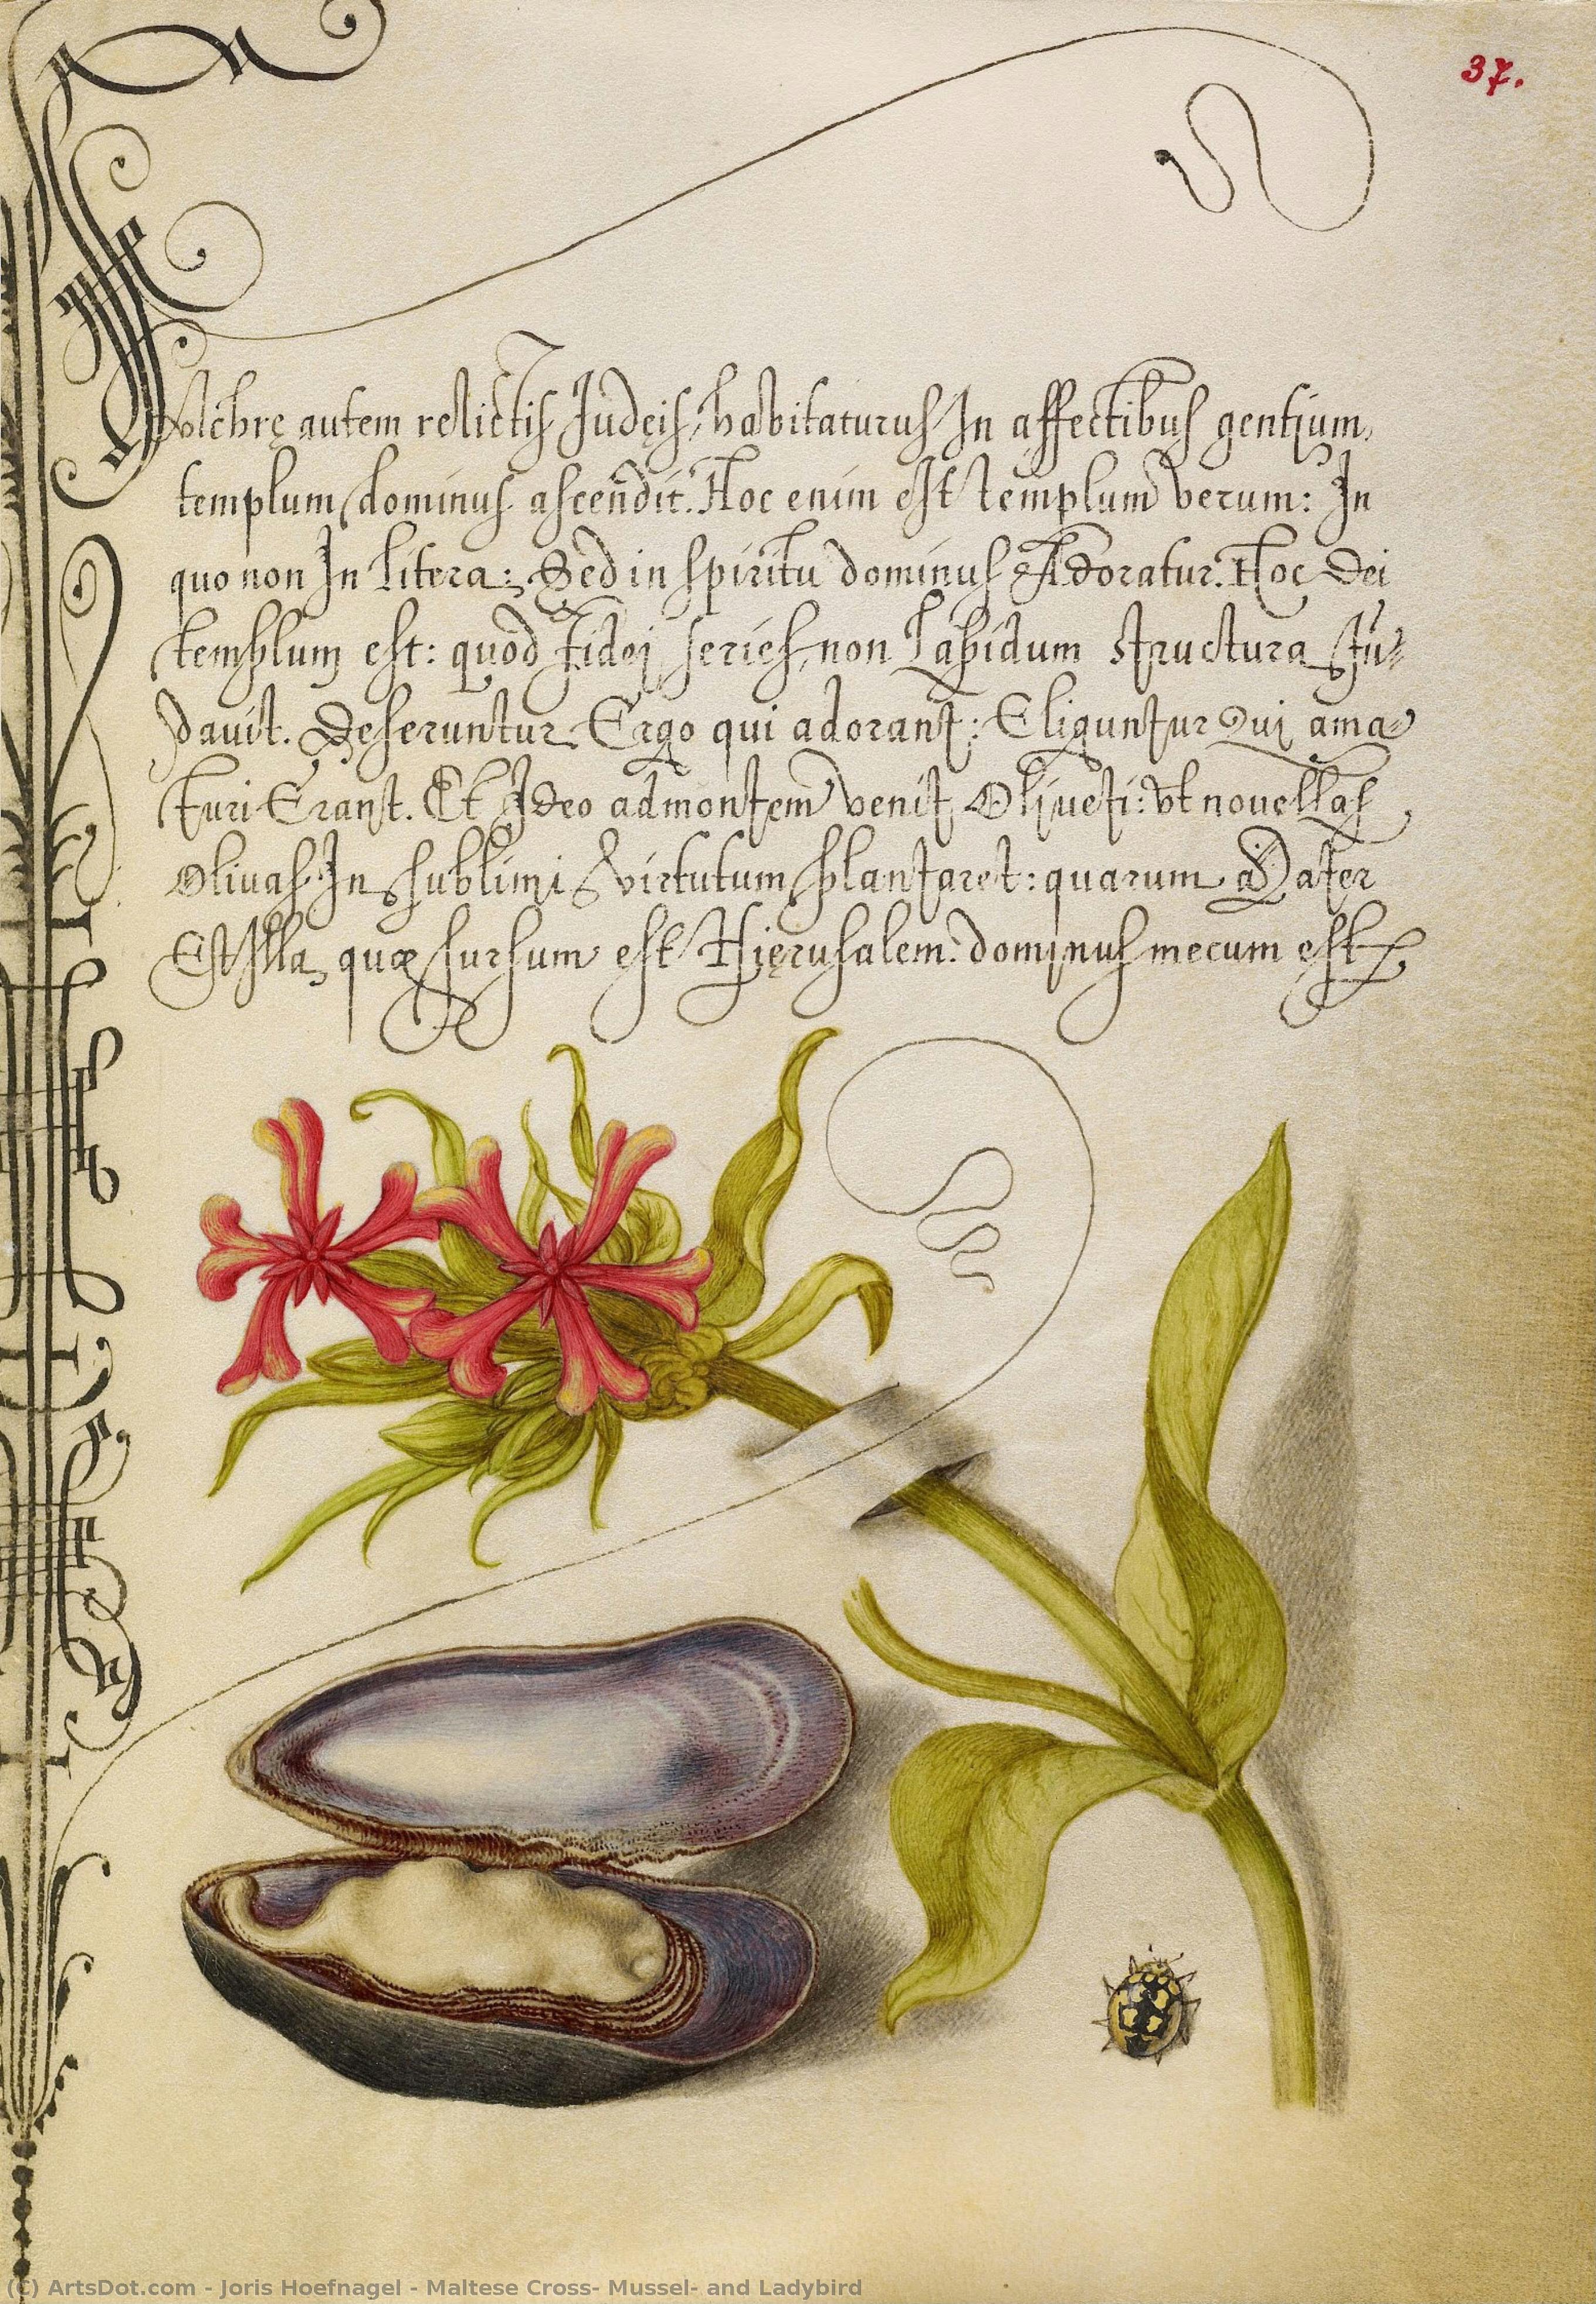 37.
Pulchrę autem relictis Iudęis, habitaturus In affectibus gentium,
templum dominus ascendit. Hoc enim est templum verum: In
quo non In litera: Sed in spiritu dominus Adoratur. Hoc Dei
templum est: quod fidei series, non lapidum structura fun-
davit. Deseruntur Ergo qui adorant: Eliguntur Qui ama-
turi Erant. Et Ideo ad montem venit Oliveti: vt novellas
Olivas In sublimi virtutum plantaret: quarum Mater
Est Illa quæ sursum est Hierusalem. dominus mecum est
(C) ArtsDot.com - Joris Hoefnagel - Maltese Cross- Mussel- and Ladybird